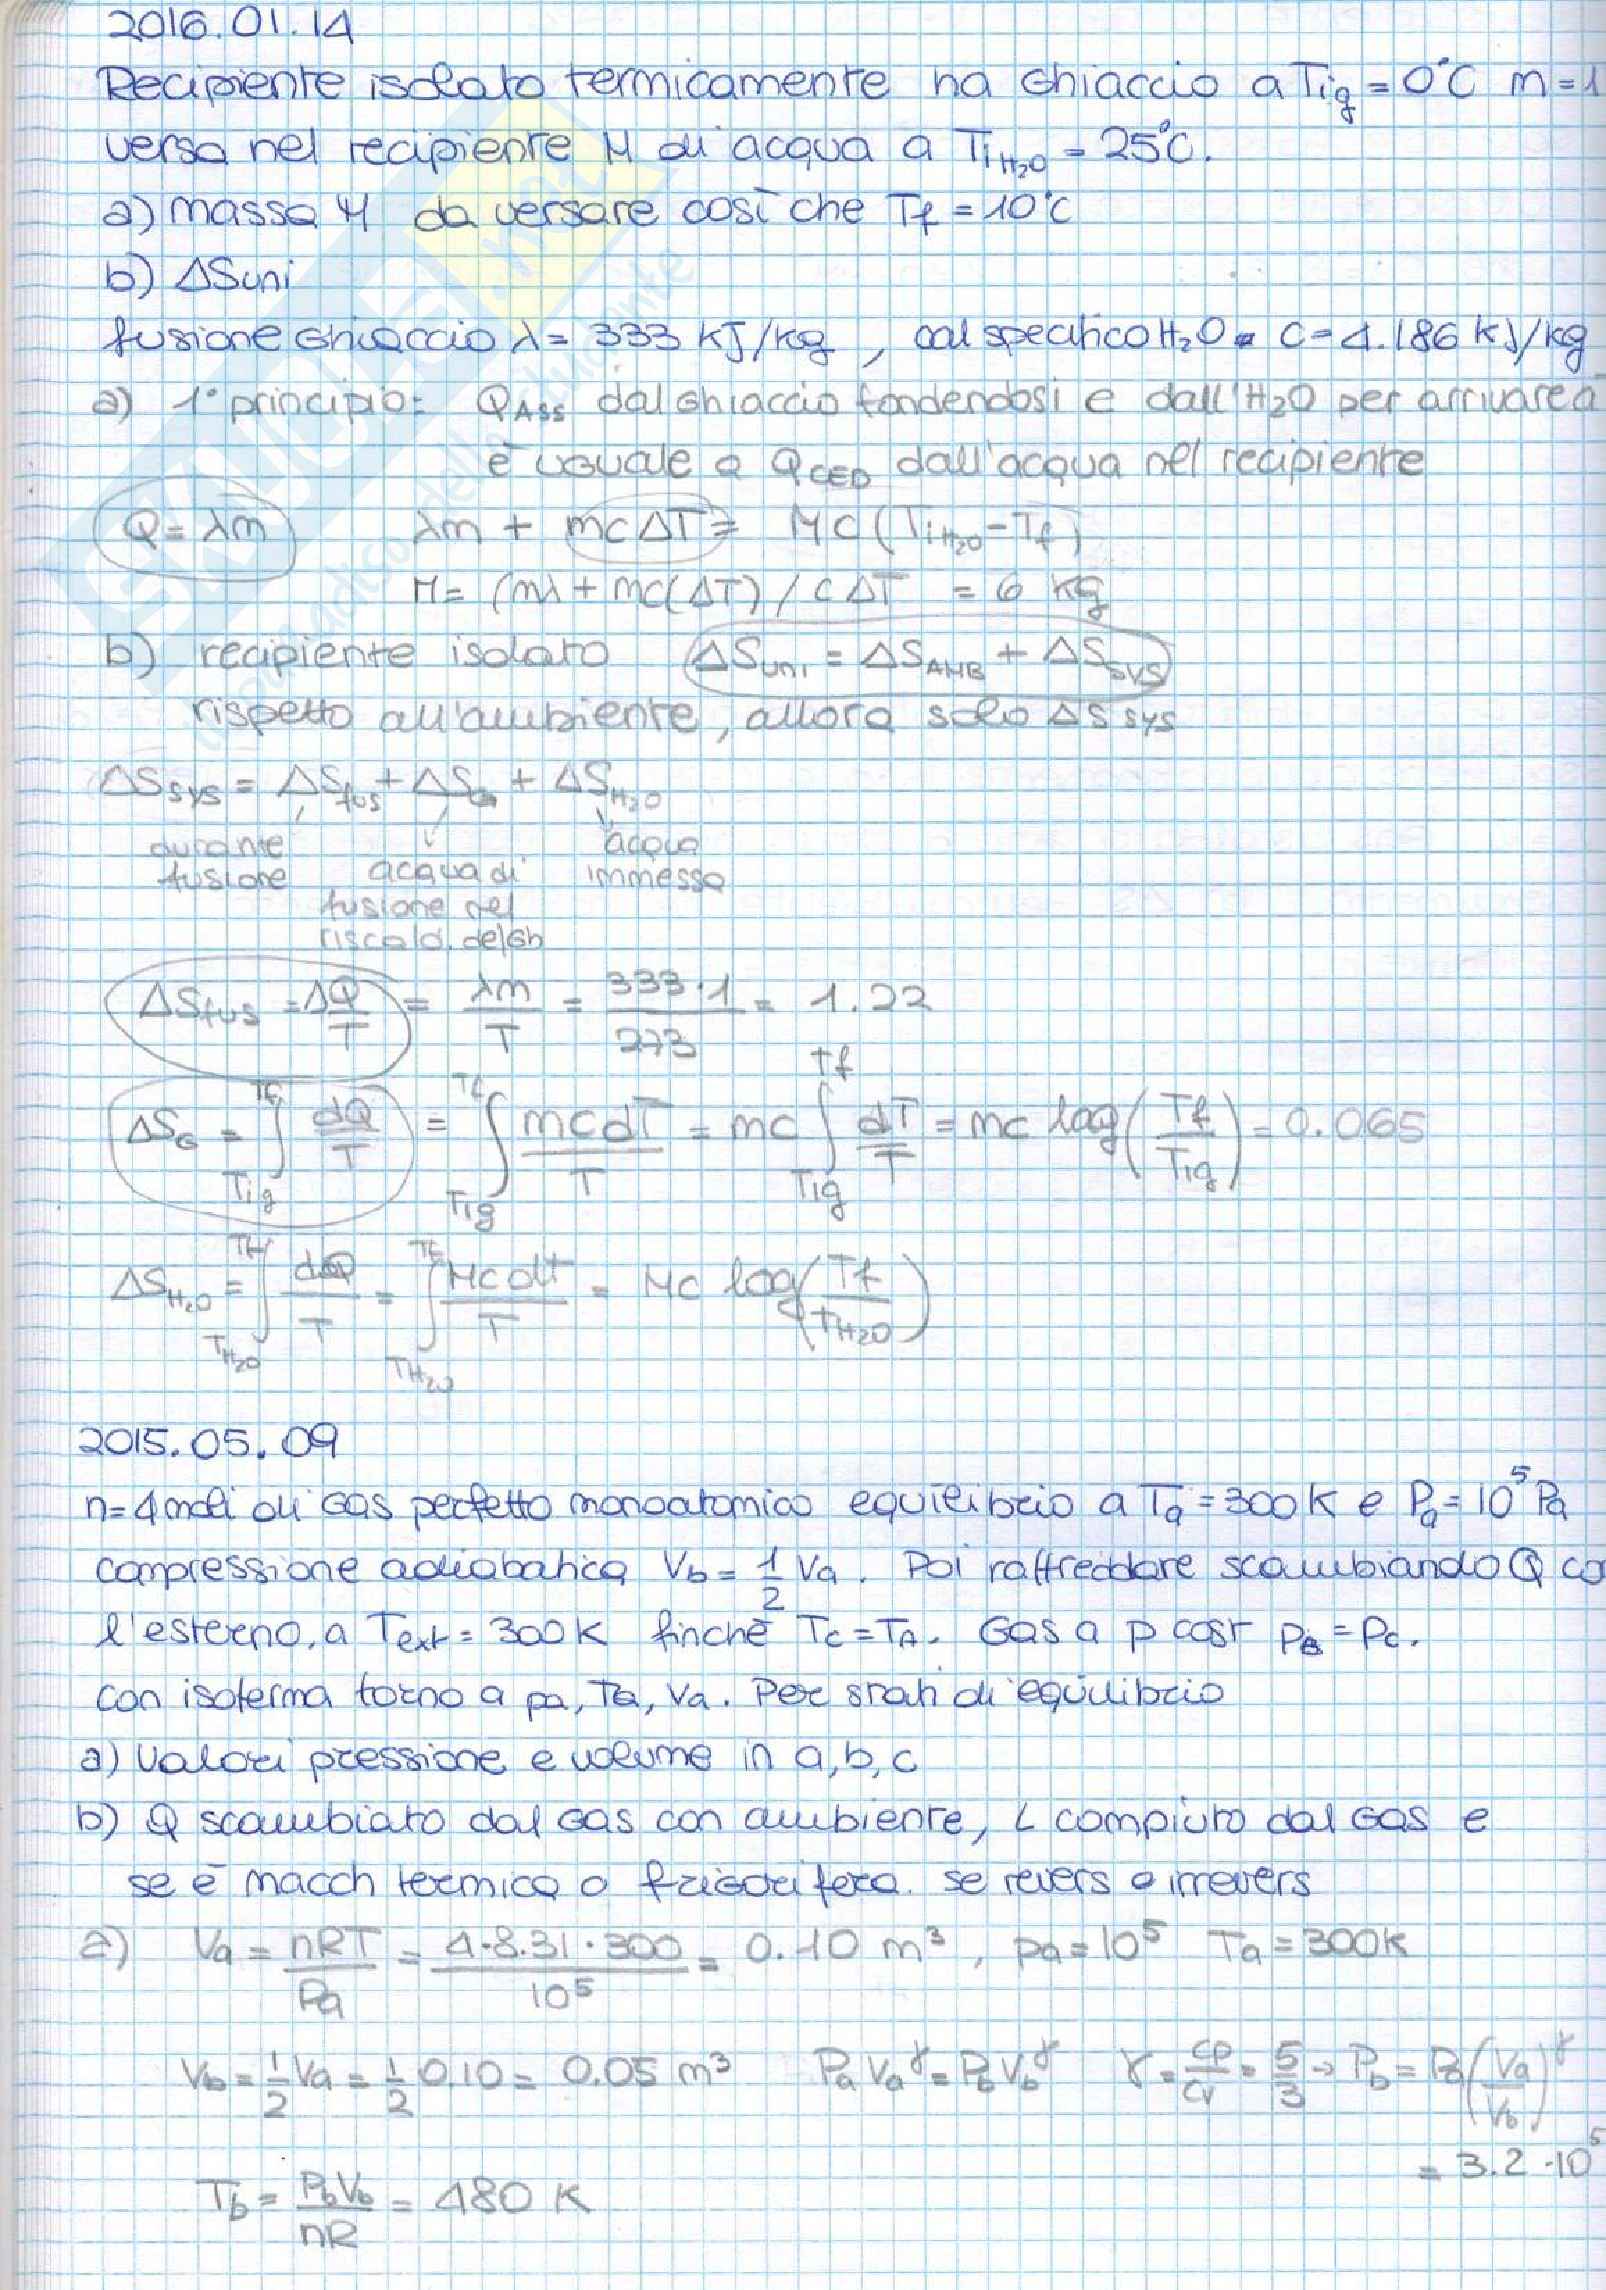 2016.01.14
Recipiente isolato termicamente ha Ghiaccio a Tig = 0°C m=1
versa nel recipiente M di acqua a TiH2O = 25°C.
a) massa M da versare così che Tf = 10°C
b) ΔSuni
fusione Ghiaccio λ = 333 kJ/kg , cal specifico H2O = C = 4.186 kJ/kg
a) 1° principio: QASS dal Ghiaccio fondendosi e dall'H2O per arrivare a
è uguale a QCED dall'acqua nel recipiente
Q = λm λm + mcΔT = MC(TiH2O - Tf)
M = (mλ + mc(ΔT)/CΔT = 6 kg
b) recipiente isolato ΔSUNI = ΔSAMB + ΔSSYS
rispetto all'ambiente, allora solo ΔS SYS
ΔSSYS = ΔSfus + ΔSG + ΔSH2O
durante fusione acqua di fusione nel riscald. del Gh acqua immessa
ΔSfus = ΔQ/T = λm/T = 333·1/273 = 1.22
ΔSG = ∫Tig^Tf dQ/T = ∫Tig^Tf mcdT/T = mc ∫Tig^Tf dT/T = mc log(Tf/Tig) = 0.065
ΔSH2O = ∫TH2O^Tf dQ/T = ∫TH2O^Tf McdT/T = Mc log(Tf/TH2O)
2015.05.09
n=4 moli di Gas perfetto monoatomico equilibrio a Ta = 300K e Pa = 10^5 Pa
compressione adiabatica Vb = 1/2 Va. Poi raffreddare scambiando Q co
l'esterno, a Text = 300K finchè Tc = TA. Gas a p cost pB = pc.
con isoterma torno a pa, Ta, Va. Per stati di equilibrio
a) Valori pressione e volume in a, b, c
b) Q scambiato dal Gas con ambiente, L compiuto dal Gas e
se è macch termica o frigorifera. se revers o irrevers
a) Va = nRT/Pa = 4·8.31·300/10^5 = 0.10 m³, pa = 10^5 Ta = 300K
Vb = 1/2 Va = 1/2 0.10 = 0.05 m³ PaVa^γ = PbVb^γ γ = cp/cv = 5/3 → Pb = Pa(Va/Vb)^γ
= 3.2·10^5
Tb = PbVb/nR = 480 K